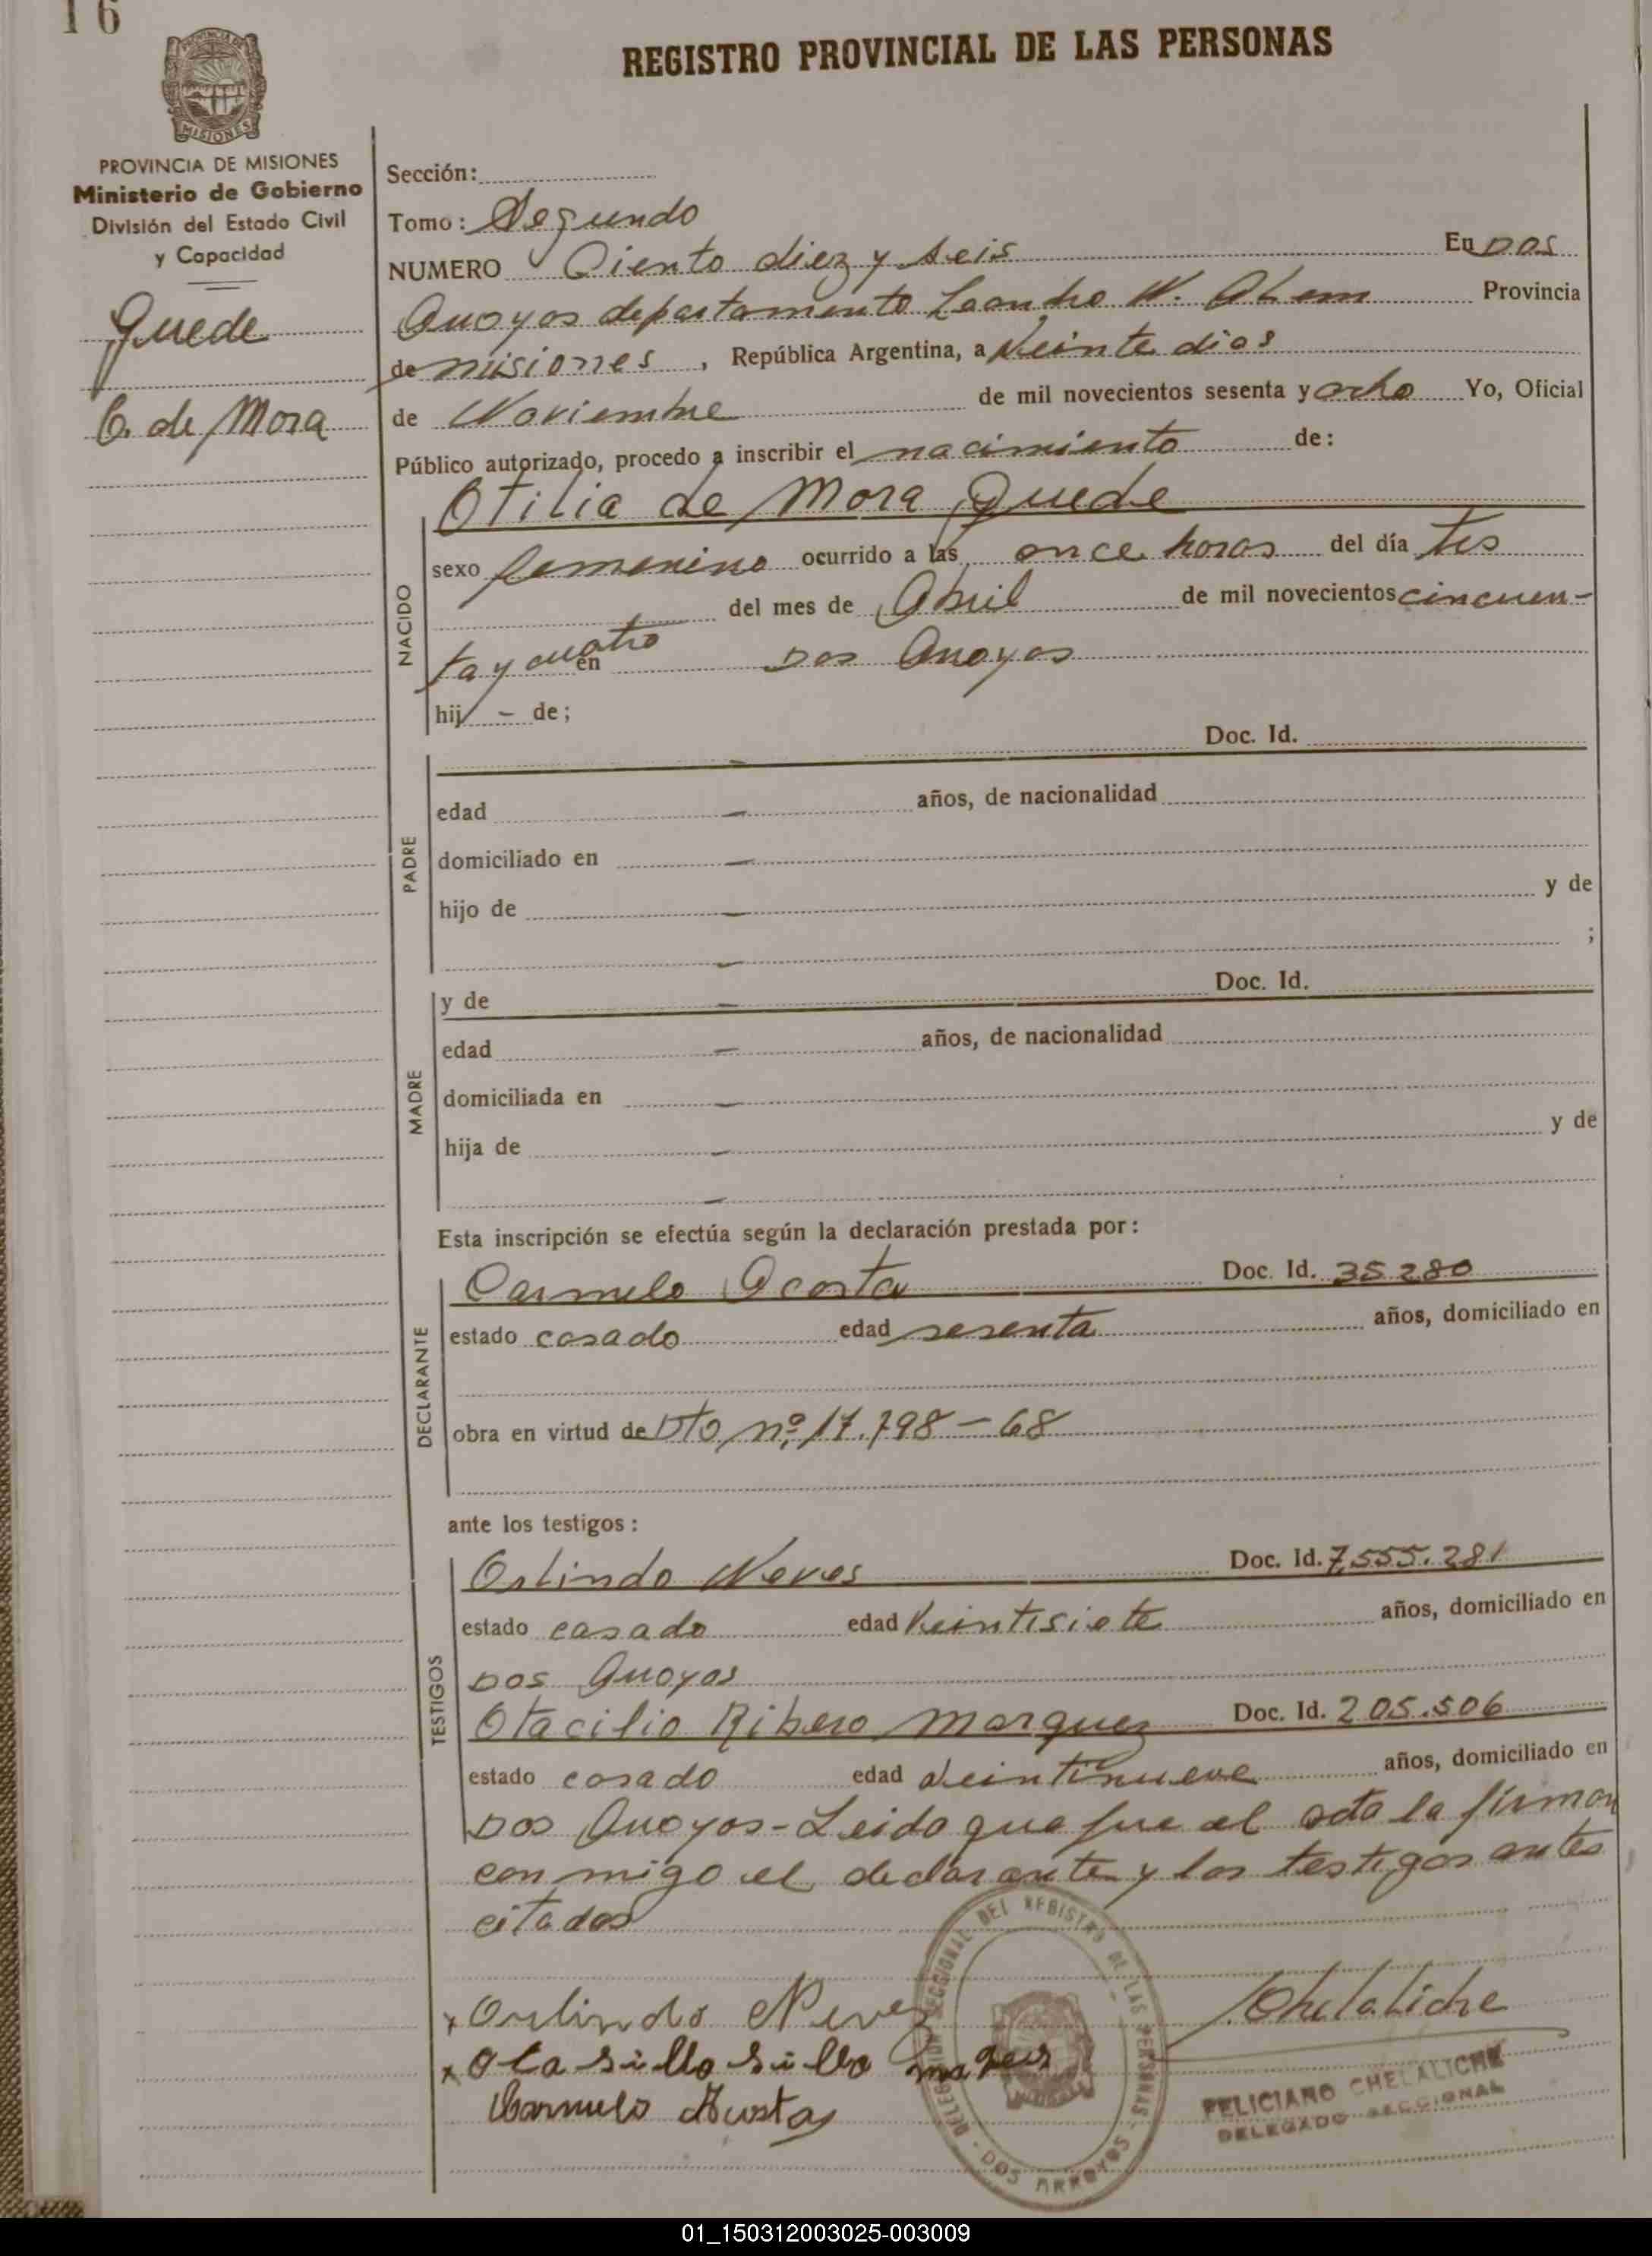 16
REGISTRO PROVINCIAL DE LAS PERSONAS
MISIONES
PROVINCIA DE MISIONES
Ministerio de Gobierno
División del Estado Civil
y Capacidad
Quede
O. de Mora
Sección:
Tomo: Segundo
NUMERO Ciento diez y seis En Dos
Arroyos departamento Leandro N. Alem Provincia
de misiones, República Argentina, a Veinte dias
de Noviembre de mil novecientos sesenta y ocho Yo, Oficial
Público autorizado, procedo a inscribir el nacimiento de:
Otilia de Mora Quede
NACIDO
sexo femenino ocurrido a las once horas del día tres
del mes de Abril de mil novecientos cincuen-
ta y cuatro en Dos Arroyos
hij - de;
PADRE
Doc. Id.
edad - años, de nacionalidad
domiciliado en -
hijo de - y de
- ;
MADRE
y de - Doc. Id.
edad - años, de nacionalidad
domiciliada en -
hija de - y de
-
Esta inscripción se efectúa según la declaración prestada por:
DECLARANTE
Carmelo Acosta Doc. Id. 35.280
estado casado edad sesenta años, domiciliado en
obra en virtud de Dto nº 17.798-68
ante los testigos:
TESTIGOS
Orlindo Neves Doc. Id. 7,555.281
estado casado edad Veintisiete años, domiciliado en
Dos Arroyos
Otacilio Ribero Marquez Doc. Id. 205.506
estado casado edad Veintinueve años, domiciliado en
Dos Arroyos - Leido que fue el acta la firman
conmigo el declarante y los testigos antes
citados
DELEGACION SECCIONAL DEL REGISTRO DE LAS PERSONAS - DOS ARROYOS -
x Orlindo Neves
Chelaliche
Carmelo Acosta
FELICIANO CHELALICHE
DELEGADO SECCIONAL
01_150312003025-003009